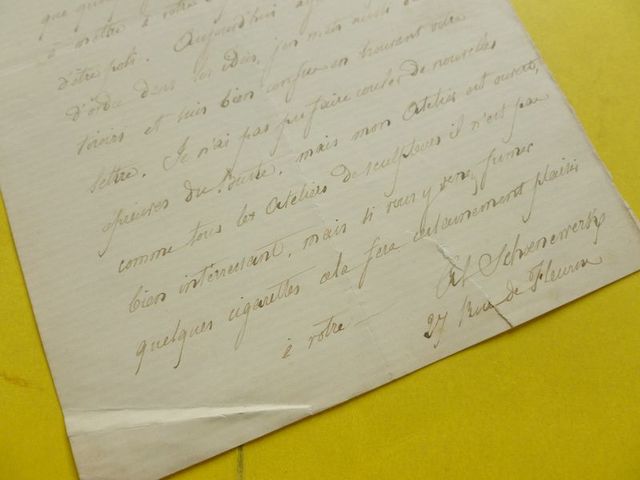 que quelq
à mettre à votre
d'être poli. Aujourd'hui
d'ordre dans les idées, j'en mets aussi d
tiroirs et suis bien confus en trouvant votre
lettre. Je n'ai pas pu faire couler de nouvelles
épreuves du Buste, mais mon Atelier est ouvert,
comme tous les Ateliers de sculpteurs il n'est pas
bien intérressant, mais si vous y venez fumer
quelques cigarettes cela fera certainement plaisir
à votre
Al Schoenewerk
27 Rue de Fleurus